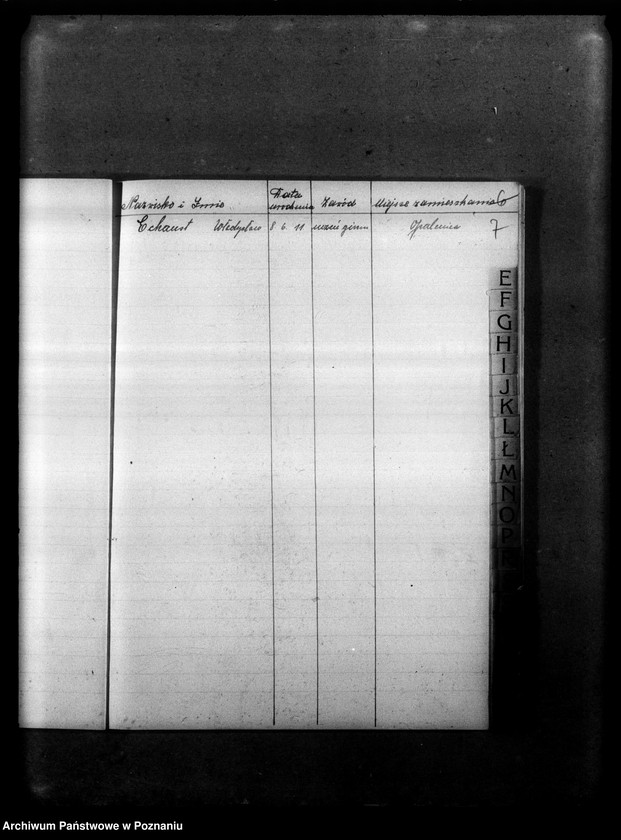 Nazwisko i Imię
Data urodzenia
Zawód
Miejsce zamieszkania
6
Echaust Władysław 8 6. 11 uczeń gimn Opalenica 7
E
F
G
H
I
J
K
L
Ł
M
N
O
P
Archiwum Państwowe w Poznaniu